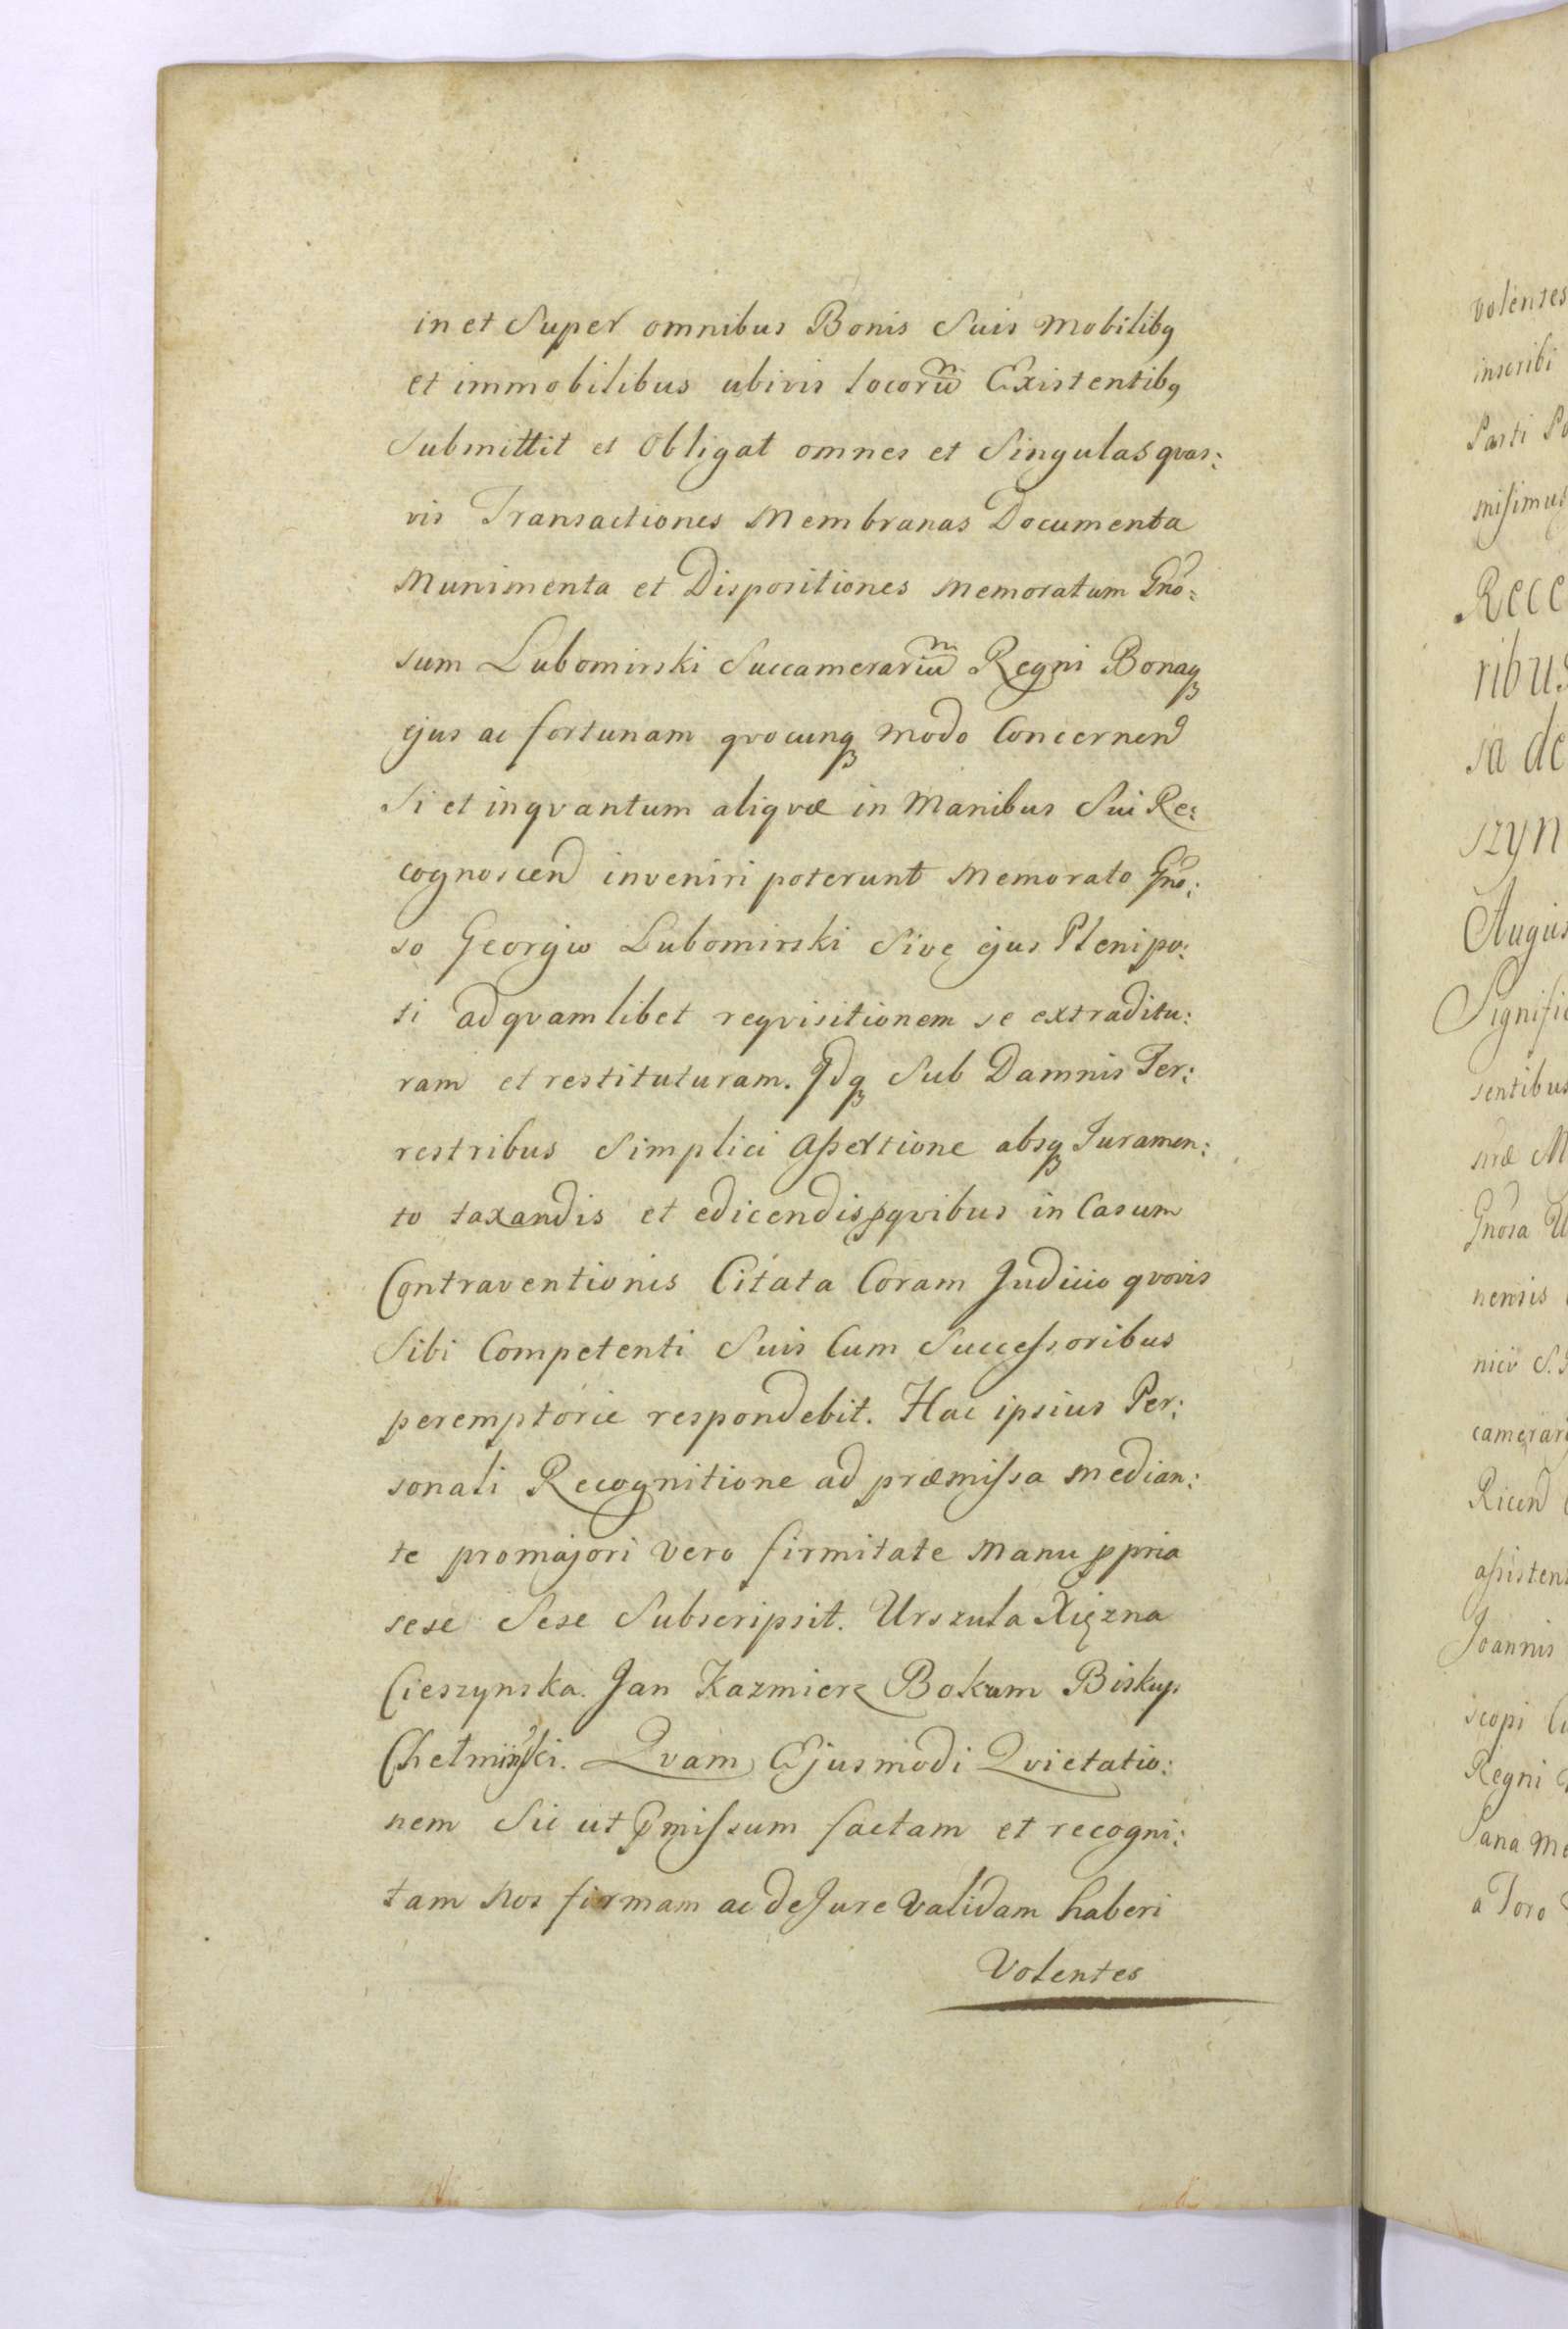 in et Super omnibus Bonis Suis Mobilibꝯ
et immobilibus ubivis locorum̃ Existentibꝯ
Submittit et Obligat omnes et Singulas quas:
vis Transactiones Membranas Documenta
Munimenta et Dispositiones Memoratum Gno:
sum Lubomirski Succamerarium̃ Regni Bonaqꝫ
ejus ac fortunam qvocunqꝫ modo Concernend
Si et inqvantum aliqvæ in Manibus Sui Re:
cognoscend inveniri poterunt Memorato Gno:
so Georgio Lubomirski Sive ejus Plenipo:
ti ad qvamlibet reqvisitionem se extraditu:
ram et restituturam. Idqꝫ Sub Damnis Ter:
restribus Simplici Assertione absqꝫ Juramen:
to taxandis et edicendis pqvibus in Casum
Contraventionis Citata Coram Judicio qvovis
Sibi Competenti Suis Cum Successoribus
peremptorie respondebit. Hac ipsius Per:
sonali Recognitione ad præmissa median:
te pro majori vero firmitate Manu ppria
sese Sese Subscripsit. Urszula Xięzna
Cieszynska. Jan Kazmierz Bokum Biskup
Chełmiński. Qvam Ejusmodi Qvietatio:
nem Sic ut Pmissum factam et recogni:
tam Nos firmam ac de Jure validam haberi
Volentes
volentes
inscribi
Parti Po
misimus
Rece
ribus
sa de
szyn
Augus
Signific
sentibus
Gnosa U
nensis
camerar
Ricend
assisten
Joannis
scopi Cu
Regni
Pana Me
a Toro